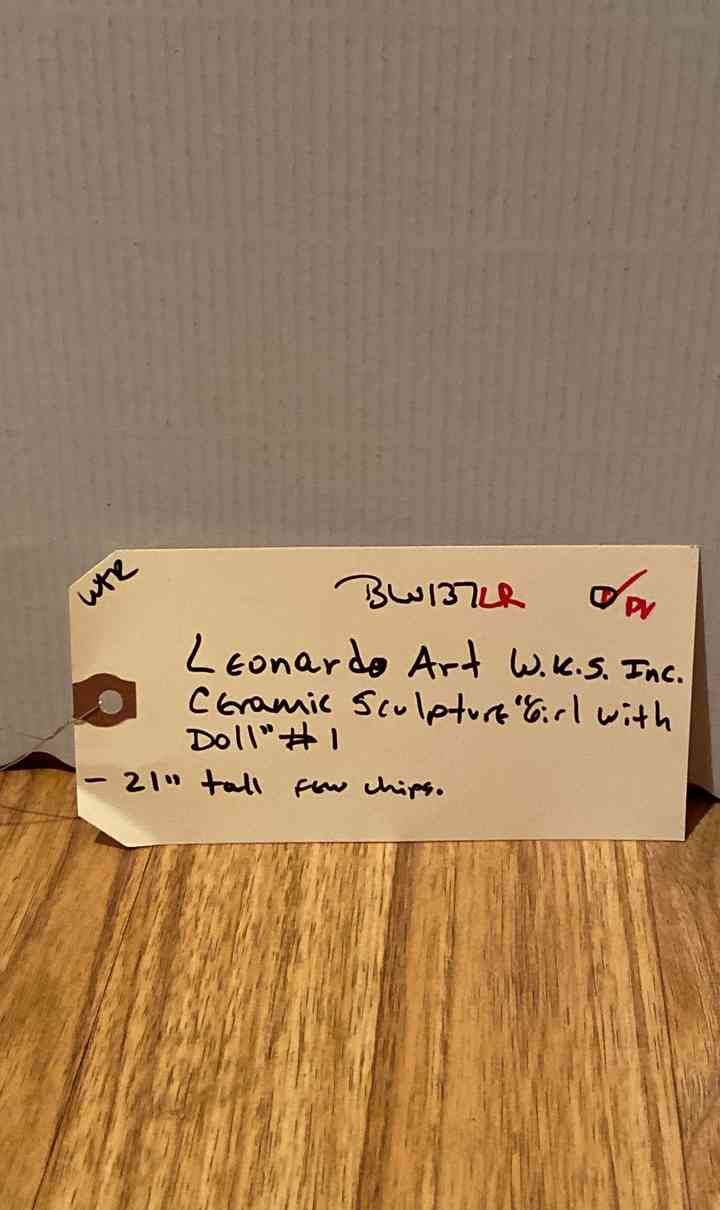 WTR
BW137LR DV
Leonardo Art W.K.S. Inc.
Ceramic Sculpture "Girl with
Doll" #1
- 21" tall few chips.